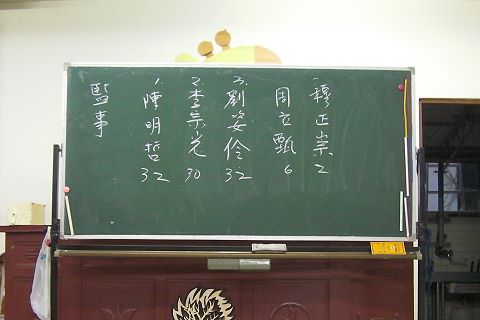 監事
1.陳明哲 32
2.李宗光 30
3.劉姿伶 32
周立甄 6
穆正崇 2